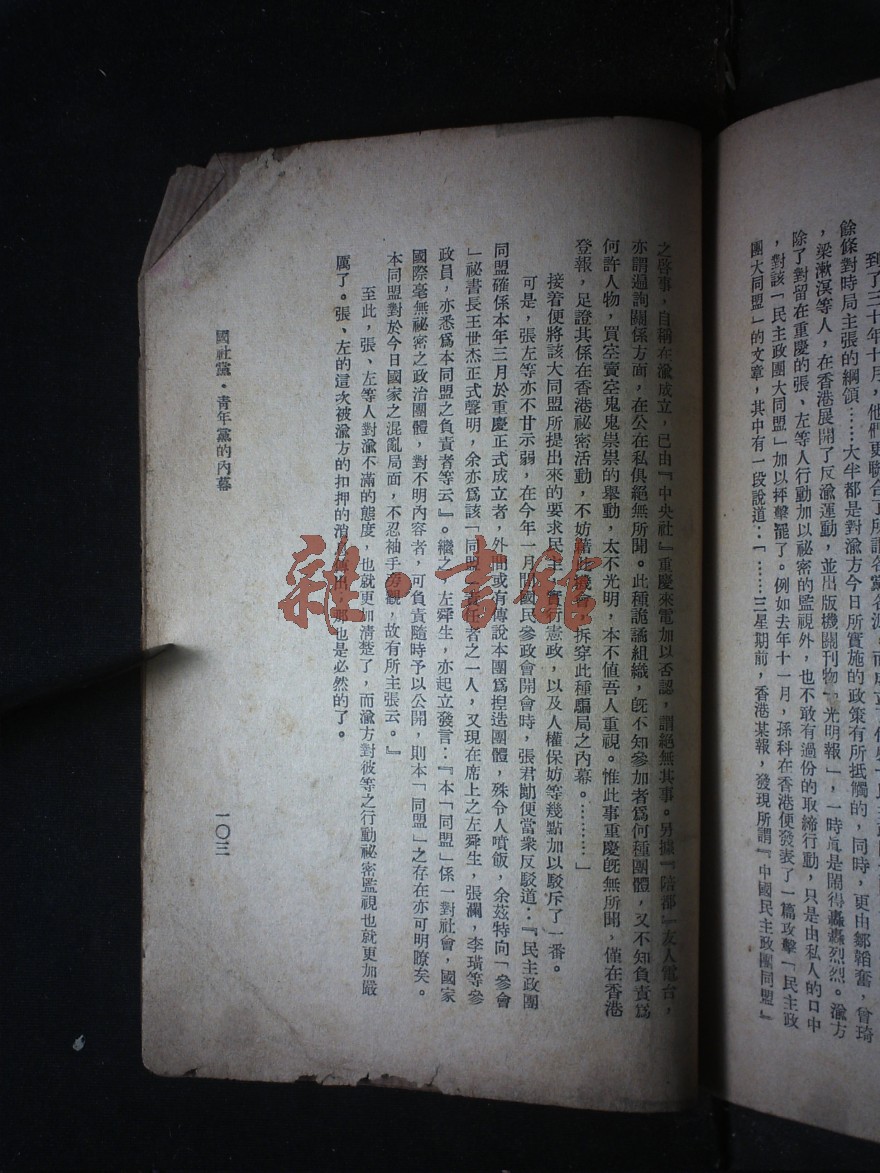 到了三十年十月，他們更聯合了所謂各黨各派，而成立了
餘條對時局主張的綱領……大半都是對渝方今日所實施的政策有所抵觸的，同時，更由鄒韜奮，曾琦
，梁漱溟等人，在香港展開了反渝運動，並出版機關刊物『光明報』，一時眞是鬧得轟轟烈烈。渝方
除了對留在重慶的張、左等人行動加以祕密的監視外，也不敢有過份的取締行動，只是由私人的口中
，對該「民主政團大同盟」加以抨擊罷了。例如去年十一月，孫科在香港便發表了一篇攻擊「民主政
團大同盟」的文章，其中有一段說道：「……三星期前，香港某報，發現所謂『中國民主政團同盟』
之啓事，自稱在渝成立，已由『中央社』重慶來電加以否認，謂絕無其事。另據『陪都』友人電告，
亦謂遍詢關係方面，在公在私俱絕無所聞。此種詭譎組織，旣不知參加者爲何種團體，又不知負責爲
何許人物，買空賣空鬼鬼祟祟的舉動，太不光明，本不値吾人重視。惟此事重慶旣無所聞，僅在香港
登報，足證其係在香港祕密活動，不妨藉此機會，拆穿此種騙局之內幕。………」
接着便將該大同盟所提出來的要求民主，實行憲政，以及人權保妨等幾點加以駁斥了一番。
可是，張左等亦不甘示弱，在今年一月間國民參政會開會時，張君勱便當衆反駁道：『民主政團
同盟確係本年三月於重慶正式成立者，外間或有傳說本團爲捏造團體，殊令人噴飯，余茲特向「參會
」祕書長王世杰正式聲明，余亦爲該「同盟」責任者之一人，又現在席上之左舜生，張瀾，李璜等參
政員，亦悉爲本同盟之負責者等云』。繼之，左舜生，亦起立發言：『本「同盟」係一對社會，國家
國際毫無祕密之政治團體，對不明內容者，可負責隨時予以公開，則本「同盟」之存在亦可明瞭矣。
本同盟對於今日國家之混亂局面，不忍袖手旁觀，故有所主張云。』
至此，張、左等人對渝不滿的態度，也就更加清楚了，而渝方對彼等之行動祕密監視也就更加嚴
厲了。張、左的這次被渝方的扣押的消息傳出，那也是必然的了。
國社黨・青年黨的內幕
一〇三
雜・書館